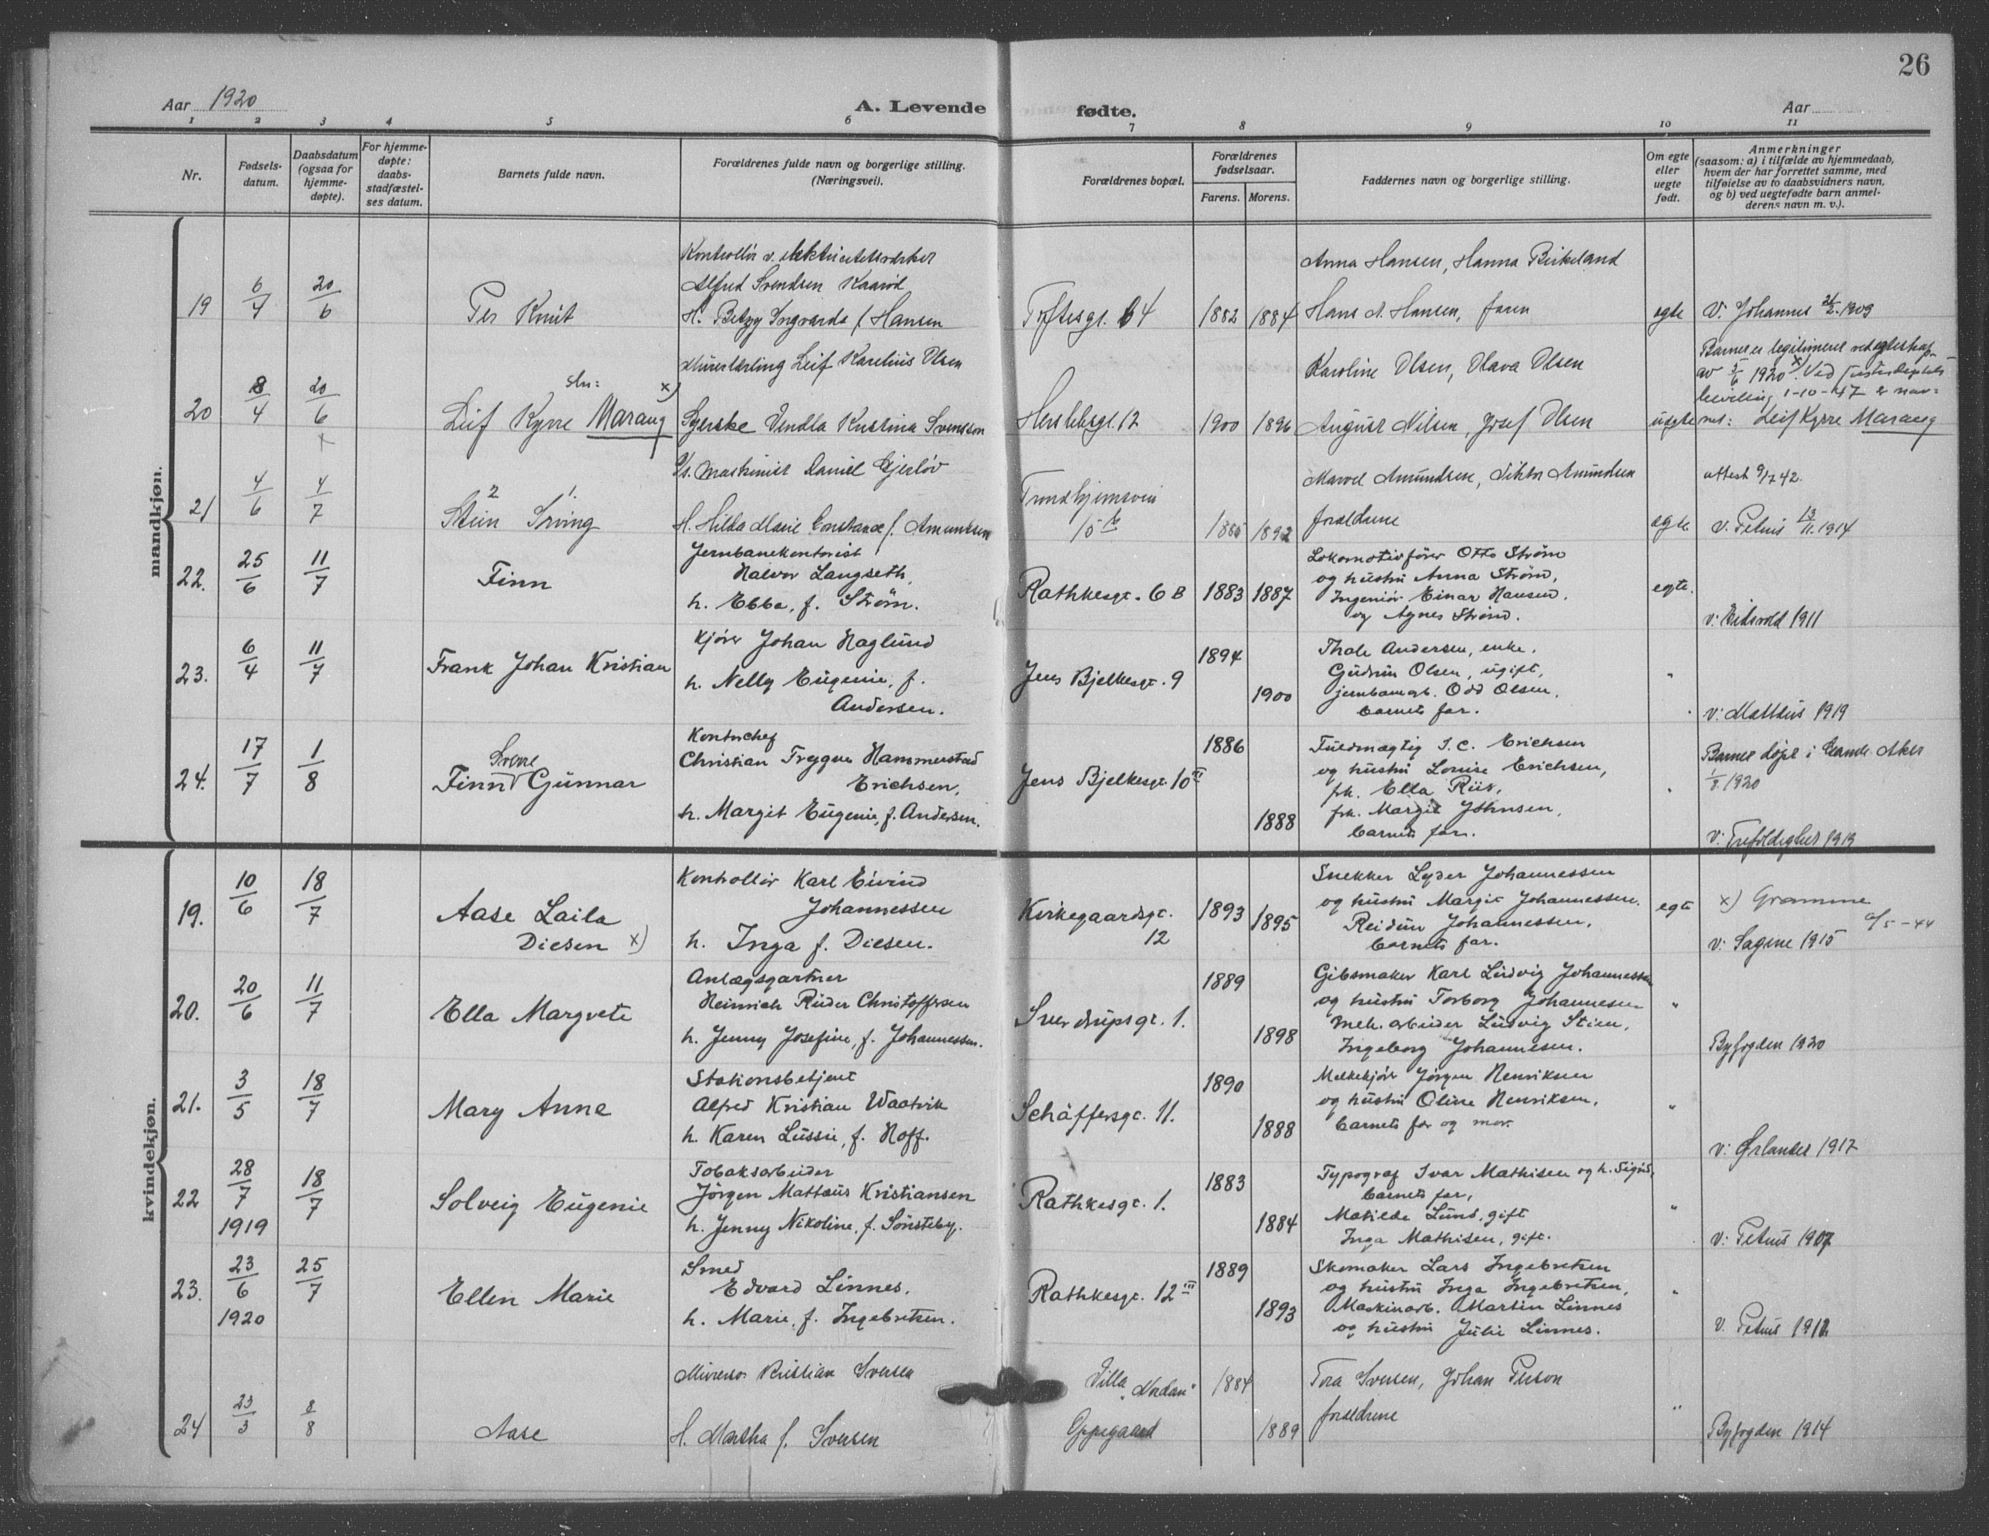 26
Aar 1920
A. Levende
fødte.
Aar
1 2 3 4 5 6 7 8 9 10 11
Nr.
Fødsels-
datum.
Daabsdatum
(ogsaa for
hjemme-
døpte).
For hjemme-
døpte:
daabs-
stadfæstel-
ses datum.
Barnets fulde navn.
Forældrenes fulde navn og borgerlige stilling.
(Næringsvei).
Forældrenes bopæl.
Forældrenes
fødselsaar.
Farens. Morens.
Faddernes navn og borgerlige stilling.
Om egte
eller
uegte
født.
Anmerkninger
(saasom: a) i tilfælde av hjemmedaab,
hvem der har forrettet samme, med
tilføielse av to daabsvidners navn,
og b) ved uegtefødte barn anmel-
derens navn m. v.).
mandkjøn.
19
6/4
20/6
Per Knut
Kontrollør v. elektricitetsverket
Alfred Svendsen Kaarød
H. Betzy Ingvarda f. Hansen
Toftesgt. 64
1882 1884
Anna Hansen, Hanna Birkeland
Hans N. Hansen, faren
egte
V. Johannes 1909
20
8/4
20/6
x
Leif Kyrre Maraug x)
Murerlærling Leif Karelius Olsen
Syerske Vendla Kristina Svensson
Herslebsgt. 12
1900 1896
Karoline Olsen, Olava Olsen
August Nilsen, Josef Olsen
uegte
Barnet er legitimert ved egteskap
av 5/6 1920. x) Ved Justisdeptets
bevilling 1-10-47 er nav-
net: Leif Kyrre Maraug
21
4/6
4/7
2 1
Stein Irving
maskinist Daniel Gjerløv
H. Hilda Marie Constance f. Amundsen
Trondhjemsvein
15 b
1885 1892
Marvel Amundsen, Viktor Amundsen
forældrene
egte
attest 9/7 42.
v. Petrus 13/11. 1914
22.
25/6
11/7
Finn
Jernbanekontorist
Halvor Langseth,
h. Ebba, f. Strøm.
Rathkesgt. 6 B
1883 1887
Lokomotivfører Otto Strøm
og hustru Anna Strøm,
Ingeniør Einar Hansen,
og Agnes Strøm.
egte.
v: Eidsvold 1911
23.
6/4
11/7
Frank Johan Kristian
Kjører Johan Haglund
h. Nelly Eugenie, f.
Andersen.
Jens Bjelkesgt. 9
1894
1900
Thale Andersen, enke.
Gudrun Olsen, ugift,
jernbanearb. Odd Olsen,
barnets far.
"
v: Matthæus 1919
24.
17/7
1/8
Sverre
Finn Gunnar
Kontorchef
Christian Trygve Hammerstad
Erichsen,
h. Margit Eugenie, f. Andersen.
Jens Bjelkesgt. 10 III
1886
1888
Fuldmægtig J. C. Erichsen
og hustru Louise Erichsen,
frk. Ella Riis,
frk. Margit Johnsen,
barnets far.
"
Barnet døpt i Aker
1/8 1920
v: Trefoldighet 1919
kvindekjøn.
19.
10/6
18/7
Aase Laila
Diesen x)
Kontrollør Karl Eivind
Johannessen
h. Inga f. Diesen.
Kirkegaardsgt.
12
1893 1895
Snekker Lyder Johannessen
og hustru Margit Johannessen.
Reidun Johannessen,
barnets far.
egte
x) Gramme
/5-44
v: Sagene 1915
20.
20/6
11/7
Ella Margrete
Anlægsgartner
Heinrich Rieder Christoffersen
h. Jenny Josefine, f. Johannessen.
Sverdrupsgt. 1.
1889
1898
Gibsmaker Karl Ludvig Johannessen
og hustru Torborg Johannesen
mek. arbeider Ludvig Stien,
Ingeborg Johannesen.
"
Byfogden 1920
21.
3/5
18/7
Mary Anne
Stationsbetjent
Alfred Kristian Waatvik
h. Karen Lussie, f. Hoff.
Schäffersgt. 11.
1890
1888
Melkekjør. Jørgen Henriksen
og hustru Oline Henriksen,
barnets far og mor.
"
v: Ørlandet 1917
22
28/7
1919
18/7
Solveig Eugenie
Tobaksarbeider
Jørgen Mattæus Kristiansen
h. Jenny Nikoline, f. Sønsteby.
Rathkesgt. 1.
1883
1884
Typograf Ivar Mathisen og h. Sigrid,
barnets far,
Matilde Lund, gift
Inga Mathisen, gift.
"
v: Petrus 1907
23.
23/6
1920
25/7
Ellen Marie
Smed
Edvard Linnes,
h. Marie, f. Ingebretsen.
Rathkesgt. 12 III
1889
1893
Skomaker Lars Ingebretsen
og hustru Inga Ingebretsen,
Maskinarb. Martin Linnes
og hustru Julie Linnes.
"
v. Petrus 1912
24
23/3
8/8
Aase
Murersv. Kristian Iversen
H. Martha f. Iversen
Villa
"Nordan"
Oppegaard
1884
1889
Tora Iversen, Johan Person
forældrene
"
Byfogden 1914